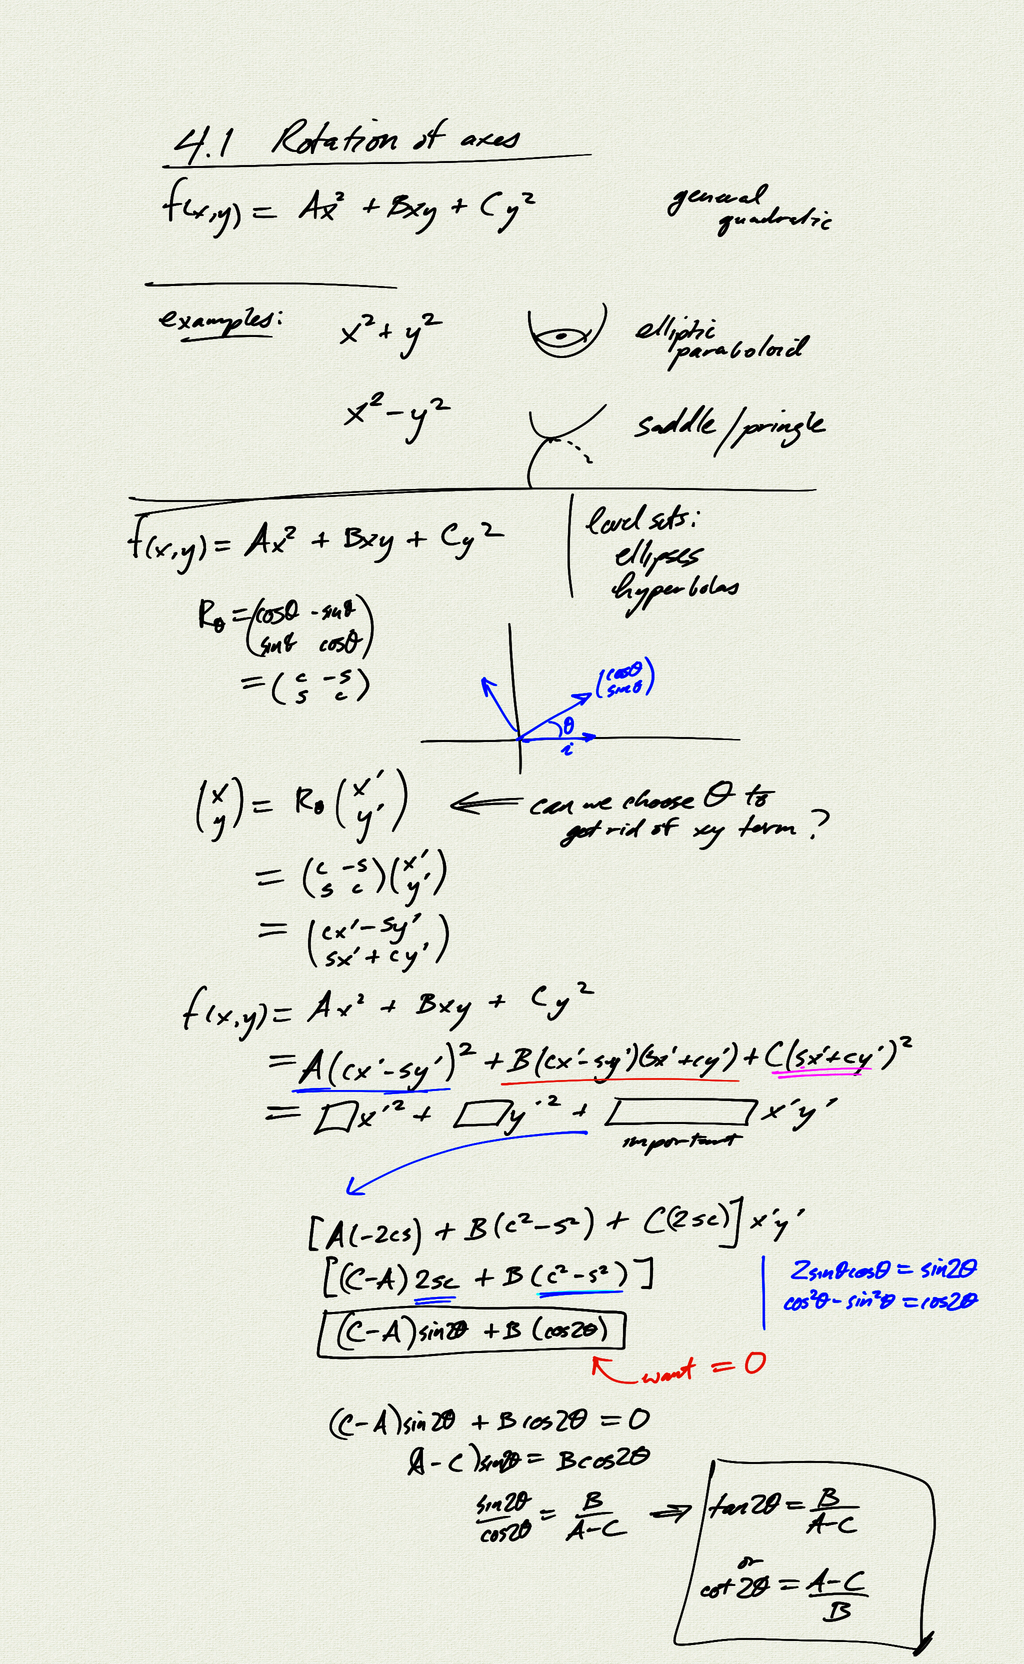 4.1 Rotation of axes
f(x,y) = Ax² + Bxy + Cy² general quadratic
examples: x² + y² elliptic paraboloid
x² - y² saddle/pringle
f(x,y) = Ax² + Bxy + Cy²
level sets:
ellipses
hyperbolas
Rθ = (cosθ -sinθ
sinθ cosθ)
= (c -s
s c)
(cosθ
sinθ)
θ
i
(x
y) = Rθ (x'
y') ⟸ can we choose θ to
get rid of xy term?
= (c -s
s c)(x'
y')
= (cx' - sy'
sx' + cy')
f(x,y) = Ax² + Bxy + Cy²
= A(cx' - sy')² + B(cx' - sy')(sx' + cy') + C(sx' + cy')²
= □x'² + □y'² + □x'y'
important
[A(-2cs) + B(c² - s²) + C(2sc)] x'y'
[(C-A) 2sc + B(c² - s²)]
2sinθcosθ = sin2θ
cos²θ - sin²θ = cos2θ
(C-A)sin2θ + B(cos2θ)
want = 0
(C-A)sin2θ + Bcos2θ = 0
A-C)sin2θ = Bcos2θ
sin2θ/cos2θ = B/A-C ⟹ tan2θ = B/A-C
or
cot2θ = A-C/B